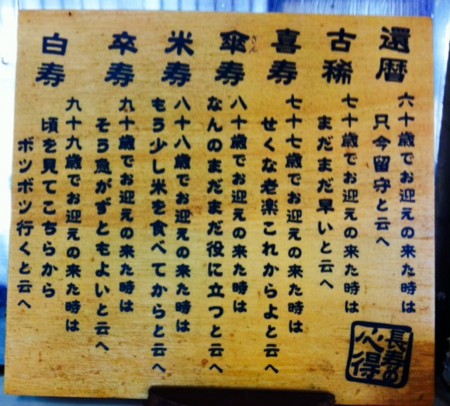 還暦
六十歳でお迎えの来た時は
只今留守と云へ
古稀
七十歳でお迎えの来た時は
まだまだ早いと云へ
喜寿
七十七歳でお迎えの来た時は
せくな老楽これからよと云へ
傘寿
さん
八十歳でお迎えの来た時は
なんのまだまだ役に立つと云へ
米寿
八十八歳でお迎えの来た時は
もう少し米を食べてからと云へ
卒寿
九十歳でお迎えの来た時は
そう急がずともよいと云へ
白寿
九十九歳でお迎えの来た時は
頃を見てこちらから
ボツボツ行くと云へ
長寿の
心得